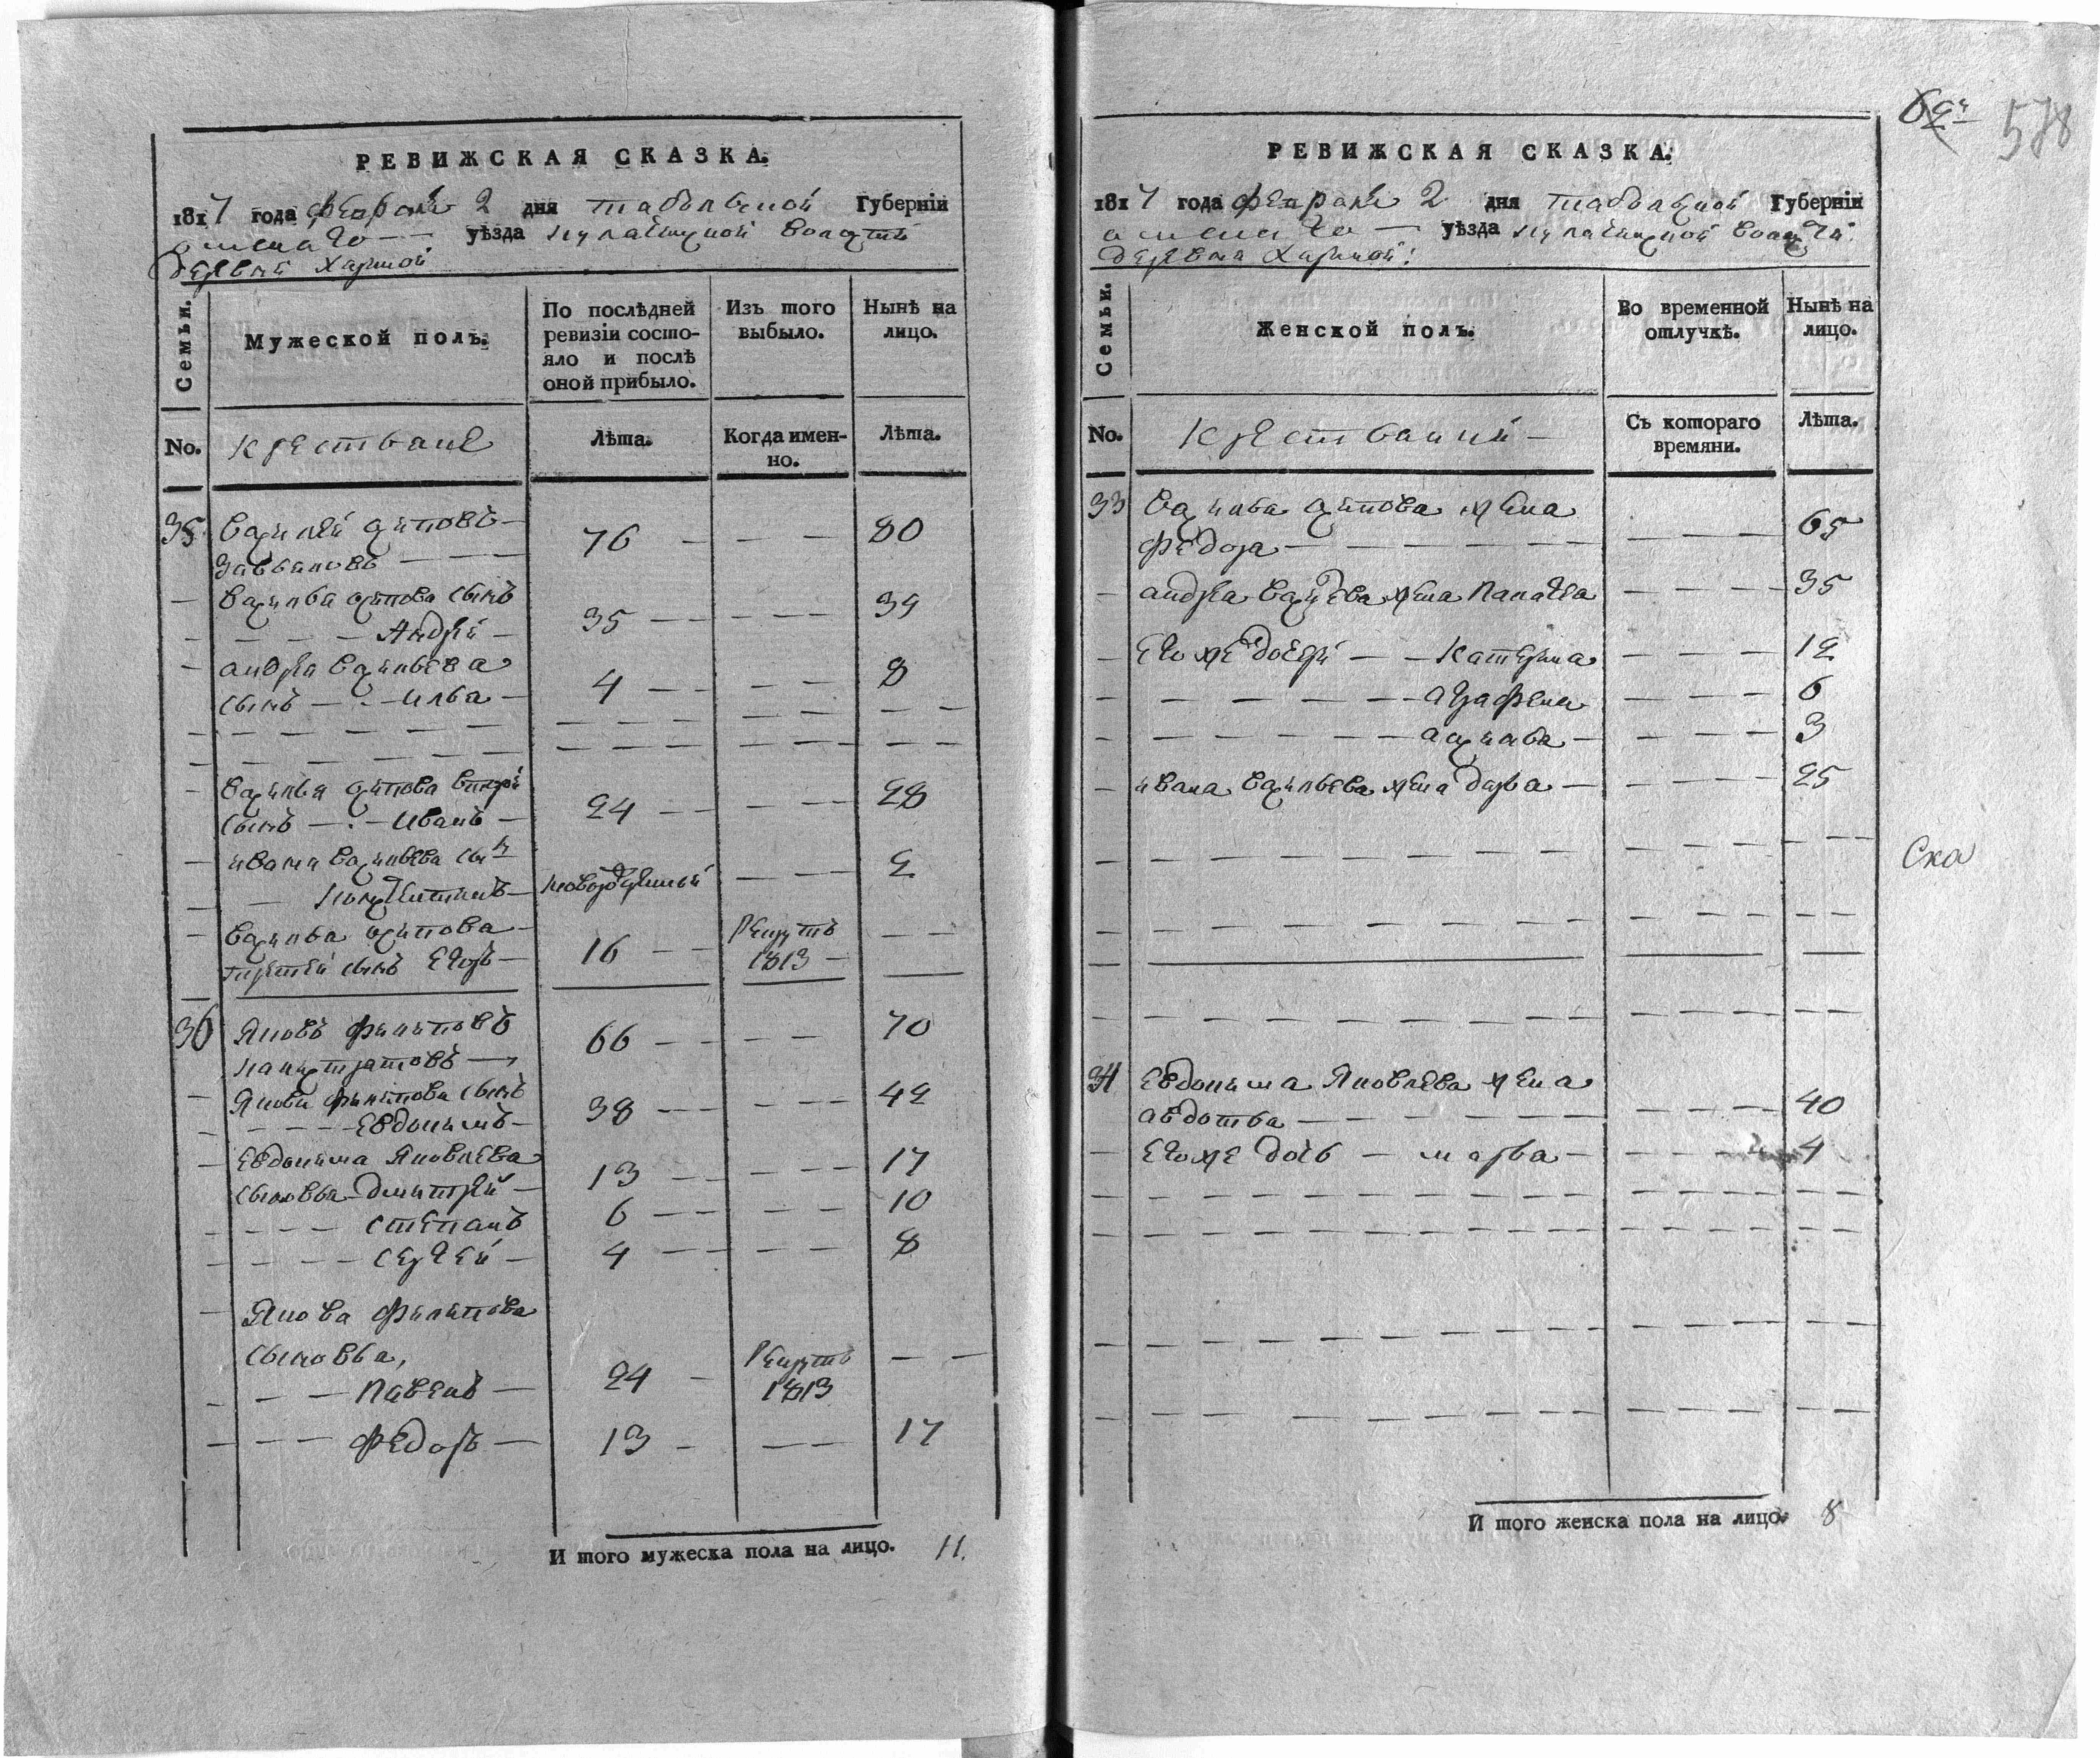 РЕВИЖСКАЯ СКАЗКА.
1817 года февраля 2 дня тобольской Губерніи
омскаго уѣзда кулачинской волости
деревни Харина
Семьи. Мужеской полъ. По послѣдней ревизіи состояло и послѣ оной прибыло. Изъ того выбыло. Нынѣ на лицо.
No. крестьяне Лѣта. Когда именно. Лѣта.
35 Василей осиповъ
завьяловъ 76 80
Василья осипова сынъ
Андрей 35 39
андрея васильева
сынъ илья 4 8
василья осипова вторй
сынъ иванъ 24 28
ивана васильева сынъ
новорожденный 2
василья осипова
третей сынъ Егоръ 16 рекрутъ 1813
36 Яковъ филиповъ 66 70
Якова филипова сынъ
Евдокимъ 38 42
Евдокима Яковлева
сыновья дмитрей 13 17
степанъ 6 10
сергей 4 8
Якова филипова
сыновья,
павелъ 24 рекрутъ 1813
федоръ 13 17
И того мужеска пола на лицо. 11.
578
РЕВИЖСКАЯ СКАЗКА.
1817 года февраля 2 дня тобольской Губерніи
омскаго уѣзда кулачинской волости
деревни Хариной
Семьи. Женской полъ. Во временной отлучкѣ. Нынѣ на лицо.
No. крестьянки Съ котораго времяни. Лѣта.
33 Василья осипова жена
федора 65
андрея васильева жена палагея 35
егоже дочери катерина 12
аграфена 6
акулина 3
ивана васильева жена дарья 25
Ска
34 евдокима Яковлева жена
авдотья 40
егоже дочь марья 4
И того женска пола на лицо. 8